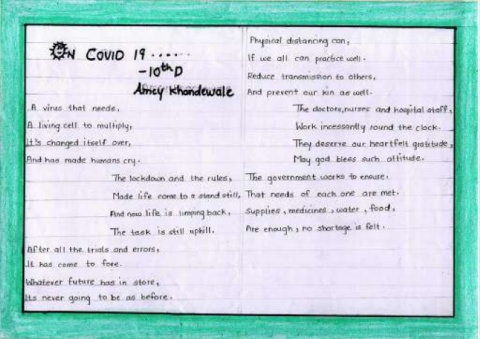 ON COVID 19......
-10th D
Amey Khandewale
A virus that needs,
A living cell to multiply,
It's changed itself over,
And has made humans cry.
The lockdown and the rules,
Made life come to a stand still,
And now life is jumping back,
The task is still uphill.
After all the trials and errors,
It has come to fore.
Whatever future has in store,
Its never going to be as before.
Physical distancing can,
If we all can practice well.
Reduce transmission to others,
And prevent our kin as well.
The doctors, nurses and hospital staff,
Work incessantly round the clock.
They deserve our heartfelt gratitude,
May god bless such attitude.
The government works to ensure.
That needs of each one are met.
Supplies, medicines, water, food,
Are enough, no shortage is felt.